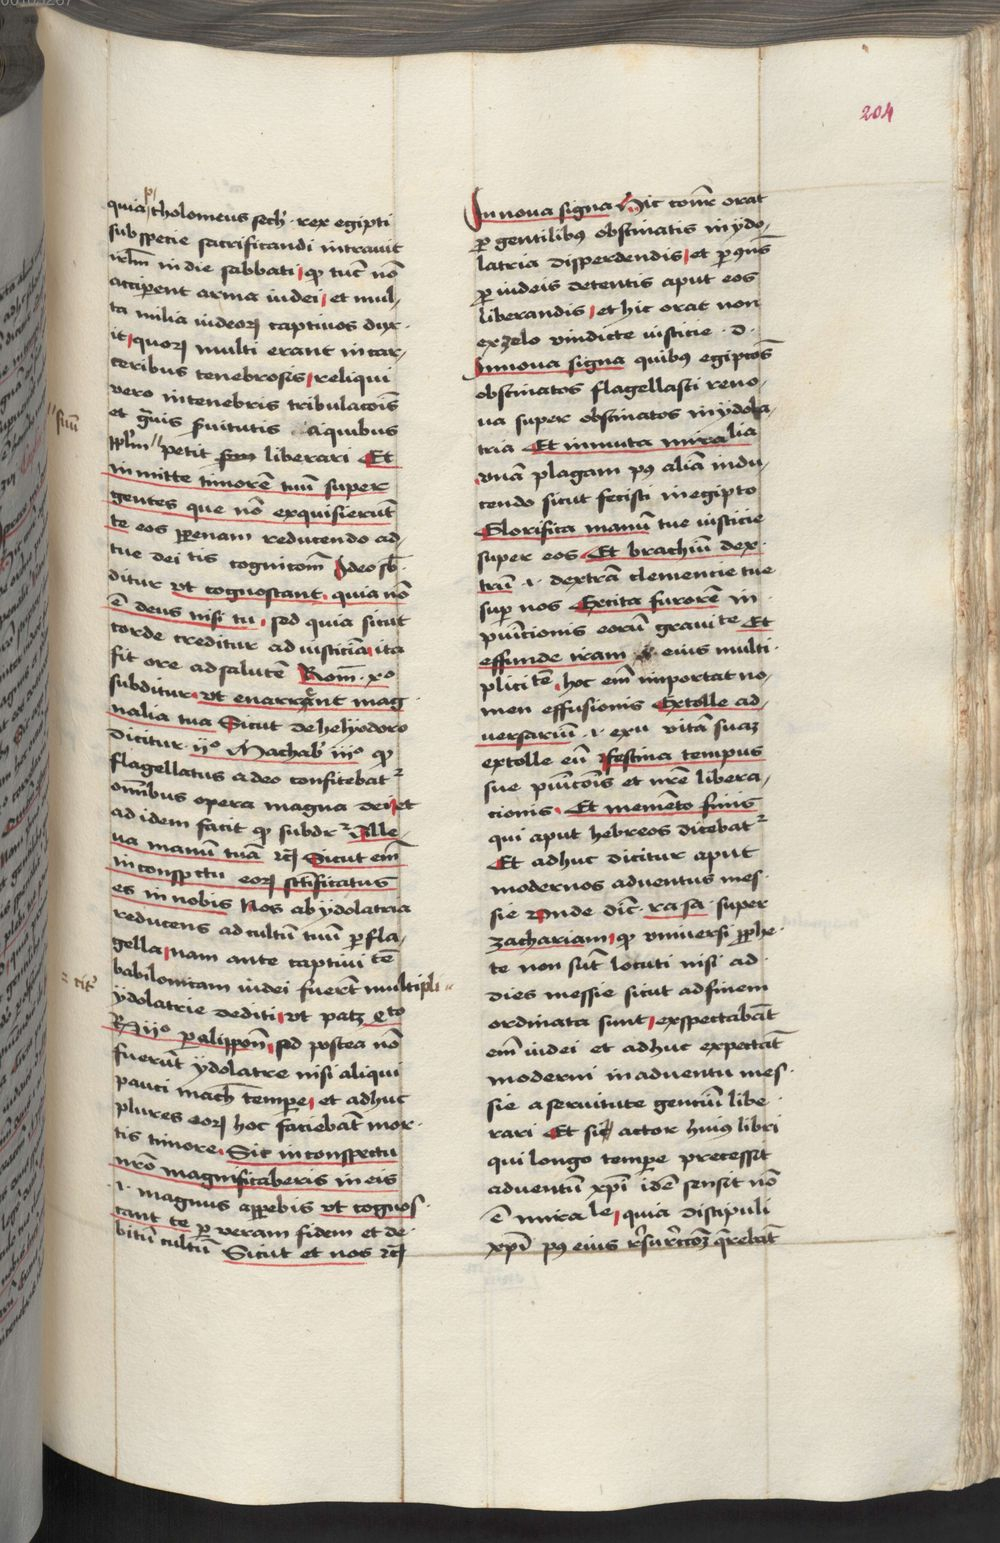 204
quia ptholomeus sech· rex egipti
sub specie sacrificandi intrauit
irlm̄ in die sabbati qͥ tūc nō
acciperent arma iudei et mul,
ta milia iudeoꝝ captiuos dux·
it quoꝝ multi erant in car,
ceribus tenebrosis reliqui
vero in tenebris tribulacōis
et gͣuis suitutis a quibus
suū
pplm̄ petit liberari Et
inmitte timorē tuū super
gentes que nō exquisierūt
te eos ppenam reducendo ad,
tue dei tis cognicōm̄ Ideo sb̄·
ditur vt cognoscant quia nō
ē deus nisi tu, sed quia sicut
corde creditur ad iusticiā ita
fit ore ad salutē Rom̄· xº
subditur vt enarrent mag
nalia tua Sicut de helyodoro
dicitur· ijº Machab̄ iijº qͥ
flagellatus adeo confitebat᷑
om̄ibus opera magna dei et
ad idem facit qͥ subdr᷑ Alle,
ua manū tuā ꝛcꝭ Sicut em̄
in conspectu eoꝝ sctificatus
es in nobis Nos ab ydolatria
reducens ad cultū tuū per fla,
gella nam ante captiui tē
= cit᷑
babilonicam iudei fuerūt multipli =
ydolatrie dediti vt patꝫ qͬto
R ijº peralippoñ sed postea nō
fuerūt ydolatre nisi aliqui
pauci mach̄ tempere et adhuc
plures eoꝝ hoc faciebāt mor·
tis timore· Sic in conspectu
nrō magnificaberis in eis
·i· magnus apperebis vt cognos·
cant te per veram fidem et de·
bitū cultū Sicut et nos ꝛcꝭ
Innoua signa Hic com̄r orat
ꝓ gentilibꝰ obstinatis in ydo,
latria disperdendis et
ꝓ iudeis detentis aput eos
liberandis et hic orat non
ex zelo vindicte iusticie· d·
Innoua signa quibꝰ egipcōs
obstinatos flagellasti reno,
ua super obstinatos in ydola
tria Et inmuta mirabilia
vnā plagam pꝰ aliā indu,
cendo sicut fecisti in egipto
Glorifica manū tue iusticie
super eos Et brachiū dex·
trū ·i· dextrā clemencie tue
supͬ nos Excita furorē in
punicionis eorū graui te Et
effunde iram eius multi·
plici tē hoc em̄ importat no,
men effusionis Extolle ad,
versariū ·i· exu vitā suaꝫ
extolle eū Festina tempus
sue punicōis et nr̄e libera,
cionis· Et memēto finis
qui aput hebreos dicebat᷑
Et adhuc dicitur aput
modernos aduentus mes·
sie vnde dic̄· ra sa super
zachariam qͥ vniuersi pphe·
te non sūt locuti nisi ad·
dies messie sicut ad finem
ordinata sunt expectabāt
em̄ iudei et adhuc expectāt
moderni in aduentu mes·
sie a seruitute genciū libe·
rari Et sic actor huiꝰ libri
qui longo tempere precessit
aduentū xp̄i idē sensit nō
ē mira le quia discipuli
xp̄i pꝰ eius resurrcōꝫ qͣrebāt